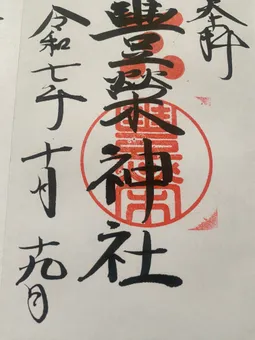 奉拝
豊榮神社
令和七年
十月
十九日